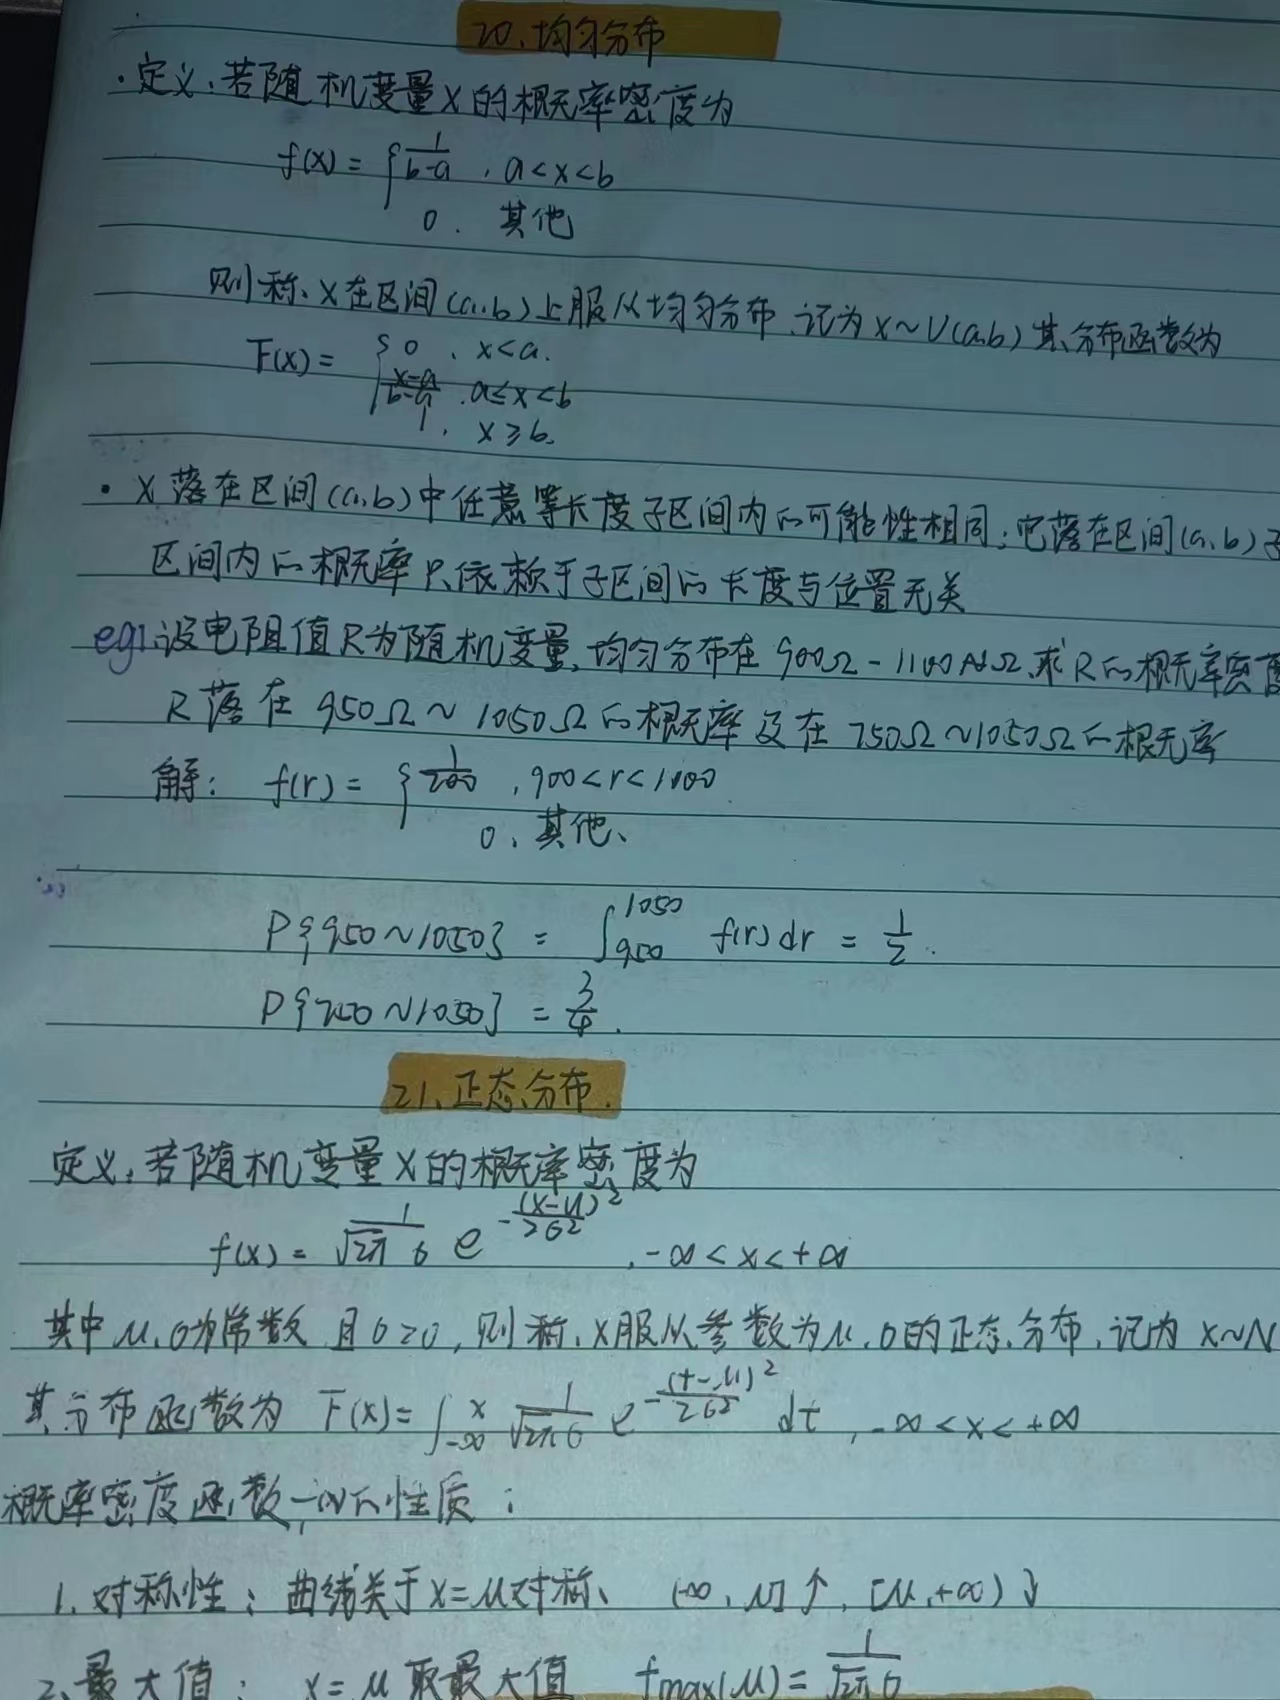 20、均匀分布
·定义:若随机变量X的概率密度为
f(x) = { 1/(b-a) , a<x<b
0 . 其他
则称、X在区间(a,b)上服从均匀分布、记为X~U(a,b) 其分布函数为
F(x) = { 0 、 x<a.
(x-a)/(b-a) . a≤x<b
1 、 x≥b.
· X 落在区间(a,b)中任意等长度子区间内的可能性相同;它落在区间(a,b)子
区间内的概率只依赖于子区间的长度与位置无关
eg1.设电阻值R为随机变量,均匀分布在 900Ω-1100Ω,求R的概率密度
R落在 950Ω~1050Ω的概率及在 750Ω~1050Ω的概率
解: f(r) = { 1/200 , 900<r<1100
0、其他、
P{950~1050} = ∫₉₅₀¹⁰⁵⁰ f(r) dr = 1/2 .
P{750~1050} = 3/4 .
21、正态分布.
定义:若随机变量X的概率密度为
f(x) = 1/(√2π σ) e^(-(x-μ)²/2σ²) , -∞<x<+∞
其中 μ,σ为常数 且σ>0, 则称、X服从参数为μ,σ的正态分布、记为 X~N
其分布函数为 F(x)= ∫₋∞ˣ 1/(√2π σ) e^(-(t-μ)²/2σ²) dt , -∞<x<+∞
概率密度函数 的性质:
1、对称性: 曲线关于X=μ对称、 (-∞,μ]↑, [μ,+∞)↓
2、最大值: x=μ取最大值 fmax(μ)= 1/(√2π σ)